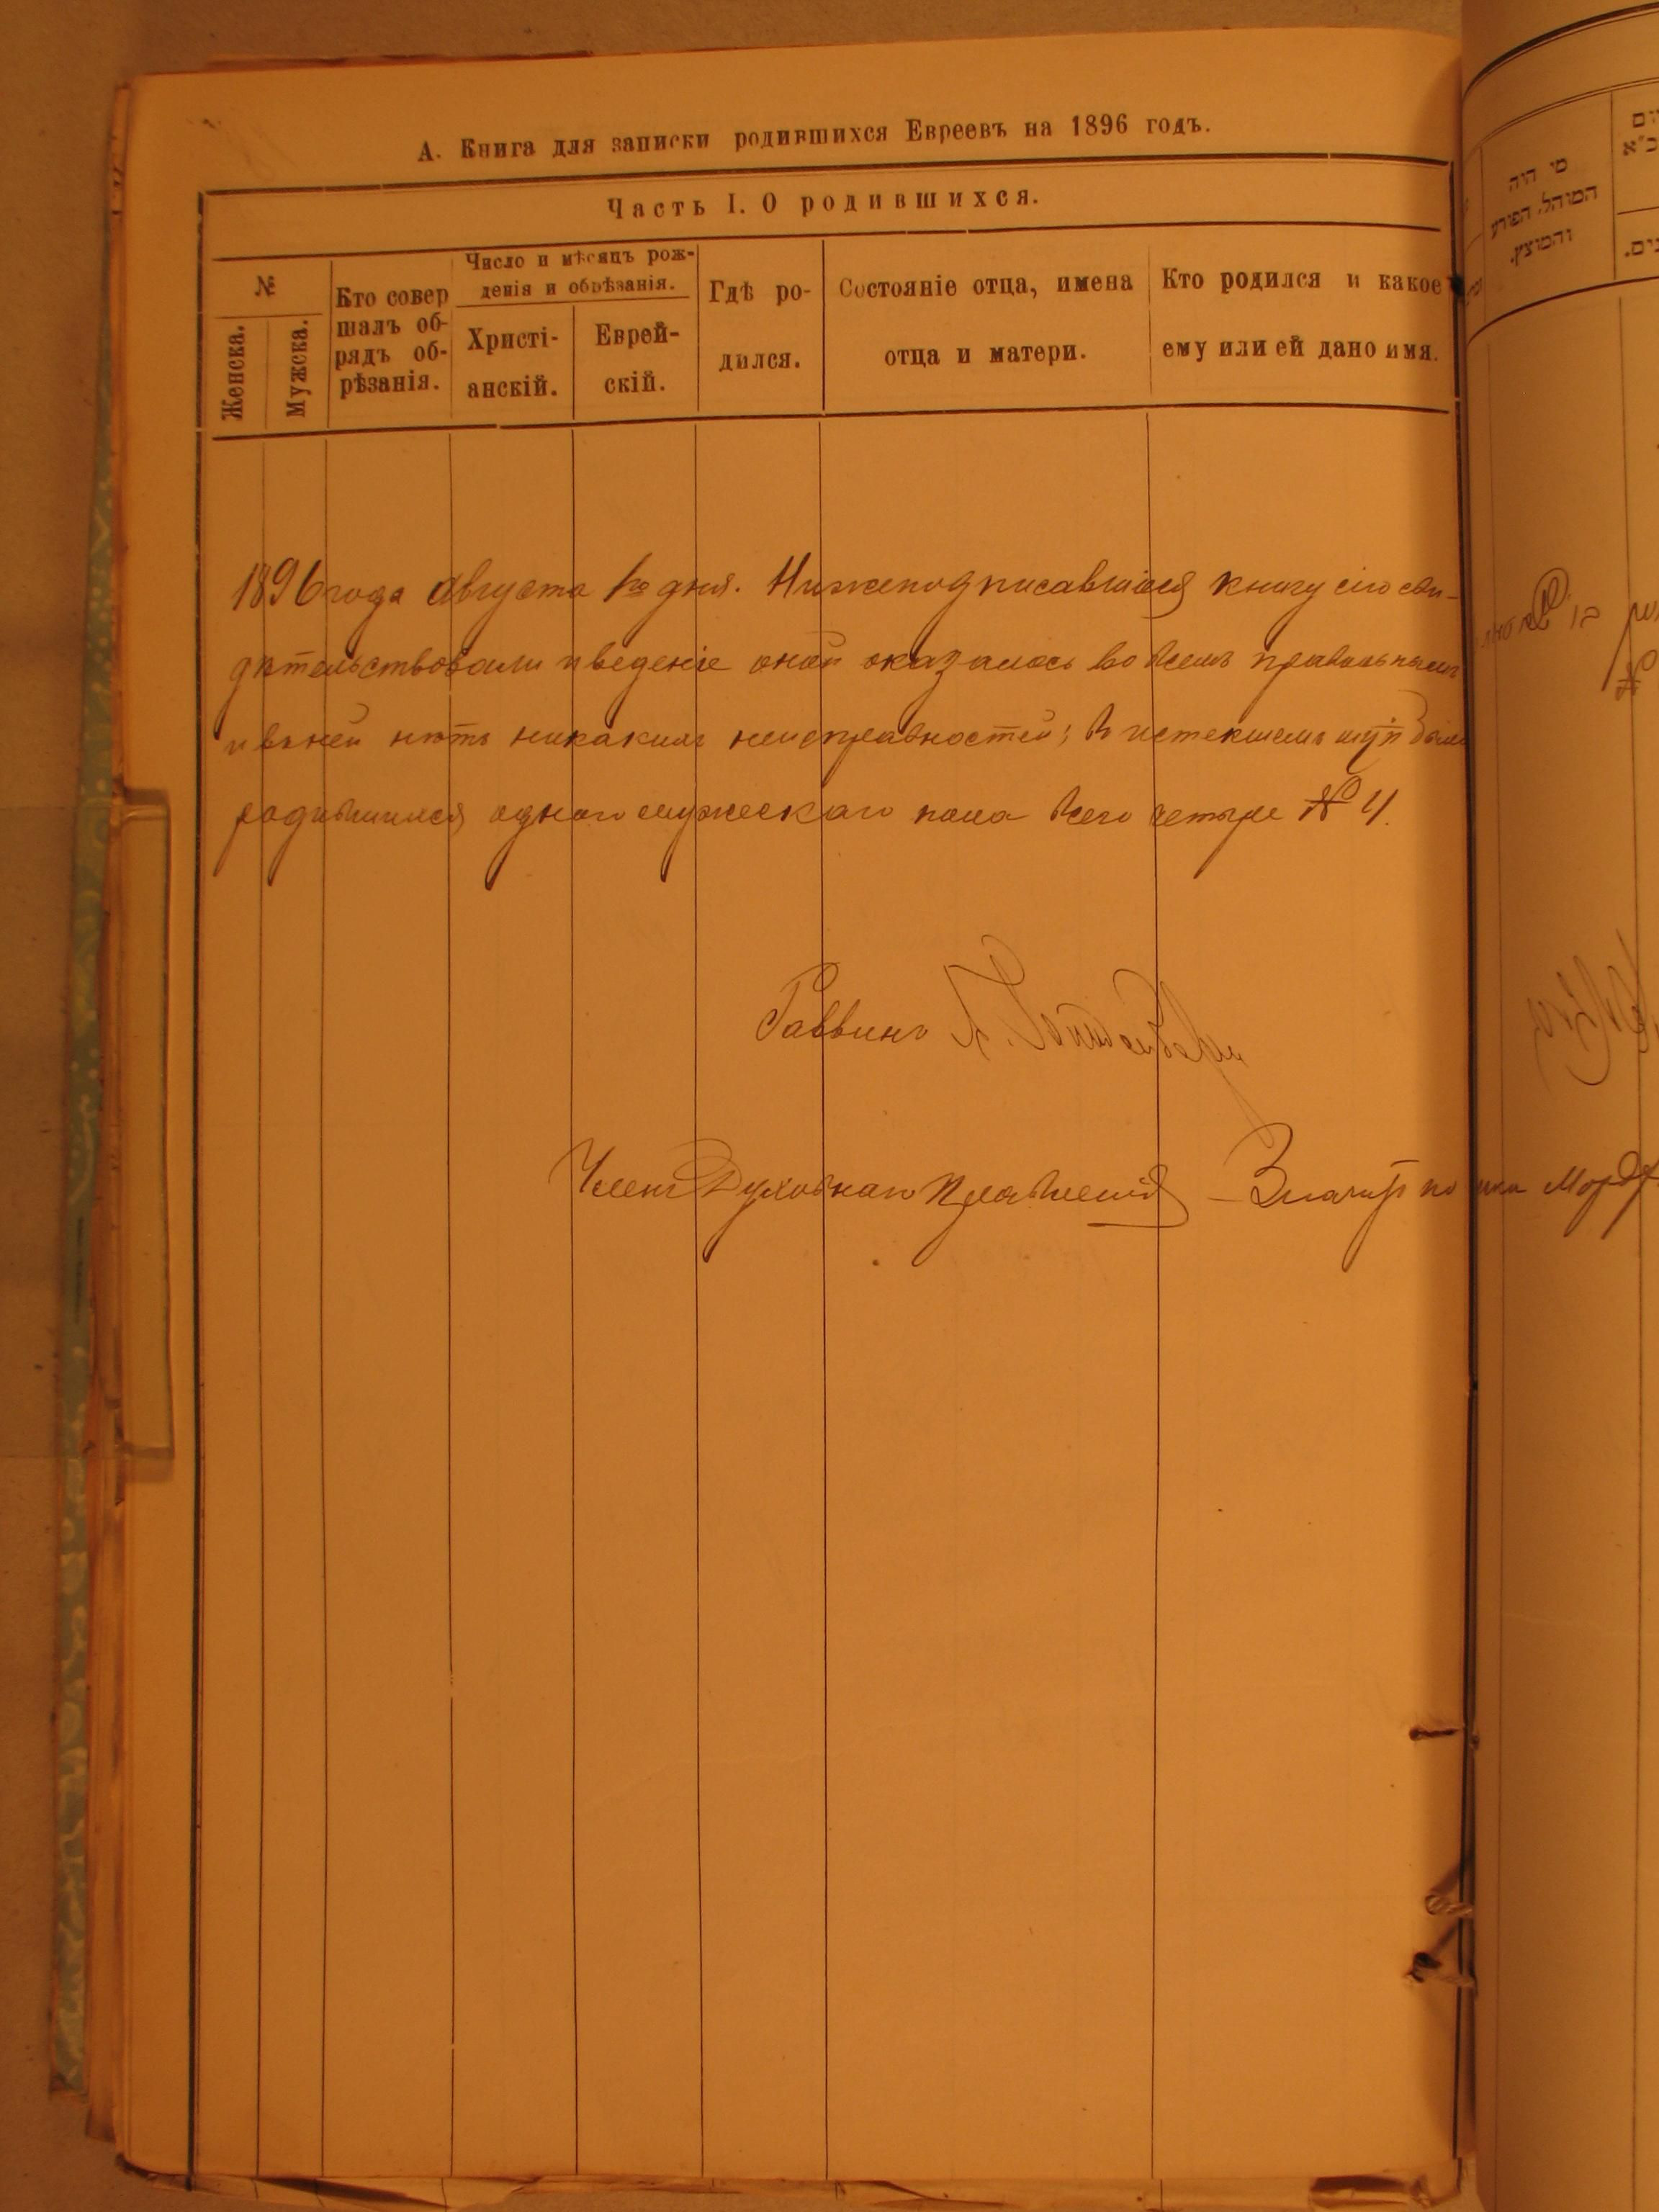 А. Книга для записки родившихся Евреевъ на 1896 годъ.
Часть I. О родившихся.
№
Женска.
Мужска.
Кто совер
шалъ об-
рядъ об-
рѣзанія.
Число и мѣсяцъ рож-
денія и обрѣзанія.
Христі-
анскій.
Еврей-
скій.
Гдѣ ро-
дился.
Состояніе отца, имена
отца и матери.
Кто родился и какое
ему или ей дано имя.
1896 года Августа 1го дня. Нижеподписавшіеся книгу сію сви-
дѣтельствовали и веденіе оной оказалось во всемъ правильнымъ
и въ ней нѣтъ никакихъ неисправностей; въ истекшемъ
родившихся одного мужескаго пола всего четыре № 4.
Раввинъ
Членъ Духовнаго Правленія
מי היה
המוהל, הפורע
והמוצץ.